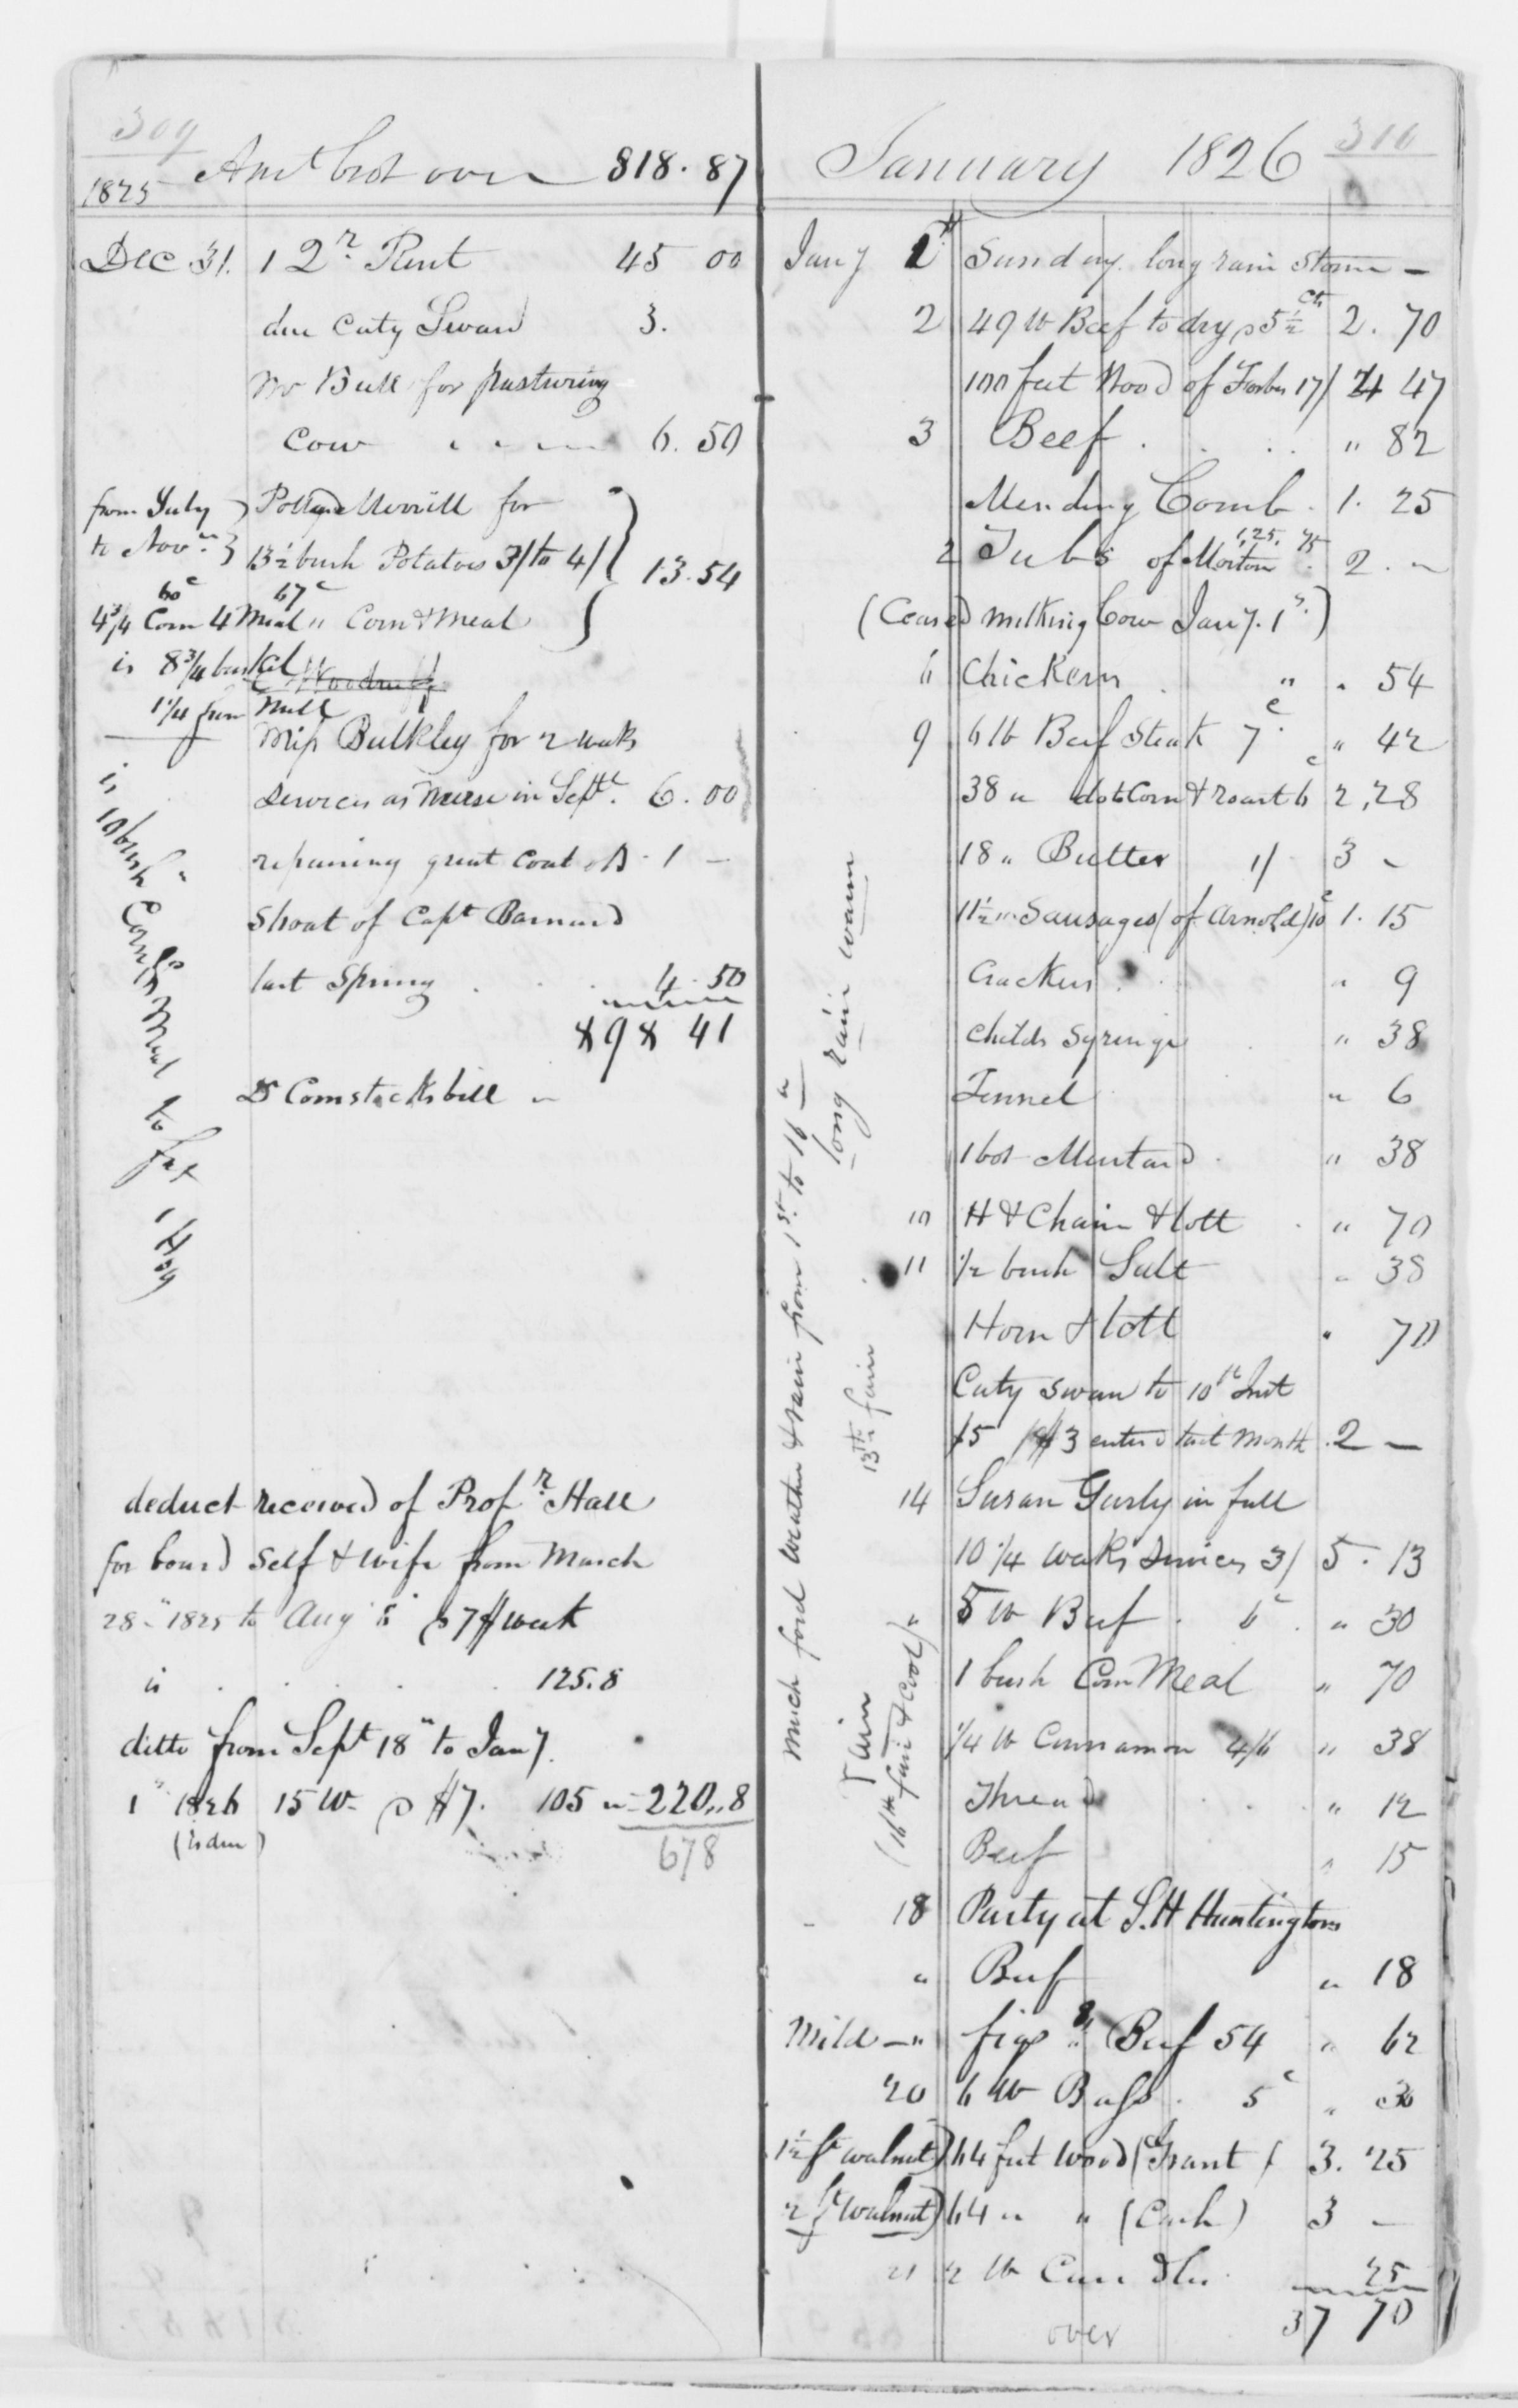 309
1825 Amt brot over 818.87
Dec 31. 1 Qr. Rent 45 00
due Caty Swan 3.
Mr Bull for pasturing
Cow 6.50
from July
to Novr.
Merrill for
13½ bush Potatoes 3/ to 4/ 13.54
60c 67c
4¾ Corn 4 Meal " Corn & Meal
is 8¾ bushel
1¼ from Mill
Miss Bulkley for 2 weeks
services as Nurse in Sept. 6.00
repairing great Coat 1 —
Shoat of Capt Barnard
last Spring 4.50
898 41
Dr Comstocks bill
is 10 bush Corn & Meal to fat 1 Hog
deduct received of Profr. Hall
for board Self & Wife from March
28" 1825 to Aug 7$ week
is 125.8
ditto from Sept 18" to Jany.
1" 1826 15 W $7. 105 " 220,,8
(is due)
678
310
January 1826
Jany 1st Sunday. long rain Storm —
2 49 lb Beef to dry 5½ cts 2.70
100 feet Wood of Forbes 17/ 4 47
3 Beef " 82
Mending Comb 1.25
2 Tubs of Morton 1,25. 75 2.
(Ceased milking Cow Jany. 1st.)
6 Chickens " 54
9 6 lb Beef Steak 7c " 42
38 " do to Corn & roast 6c 2,28
18 " Butter 1/ 3 -
11½ " Sausages (of Arnold) 10c 1.15
Crackers " 9
Childs Syringe " 38
Tunnel " 6
1 bot Mustard " 38
10 H & Chain & lott " 70
11 ½ bush Salt " 38
Horn & lott " 70
Caty Swan to 10th Inst
$5 $3 entered last Month 2 —
14 Susan Gurly in full
10¼ weeks Services 3/ 5.13
5 lb Beef 6c " 30
1 bush Corn Meal " 70
¼ lb Cinnamon 4/6 " 38
Thread " 12
Beef " 15
18 Party at S. H Huntingtons
" Beef " 18
Mild — " figs 8 " Beef 54 " 62
20 6 lb Bass 5c " 30
1½ ft walnut) 64 feet Wood (Grant) 3.25
2 ft Walnut) 64 " " (Cash) 3 —
21 2 lb Candles 25
over 37 70
much foul Weather & rain from 1st. to 16"
long rain warm
13th fair
rain
(16th fair & Cool)